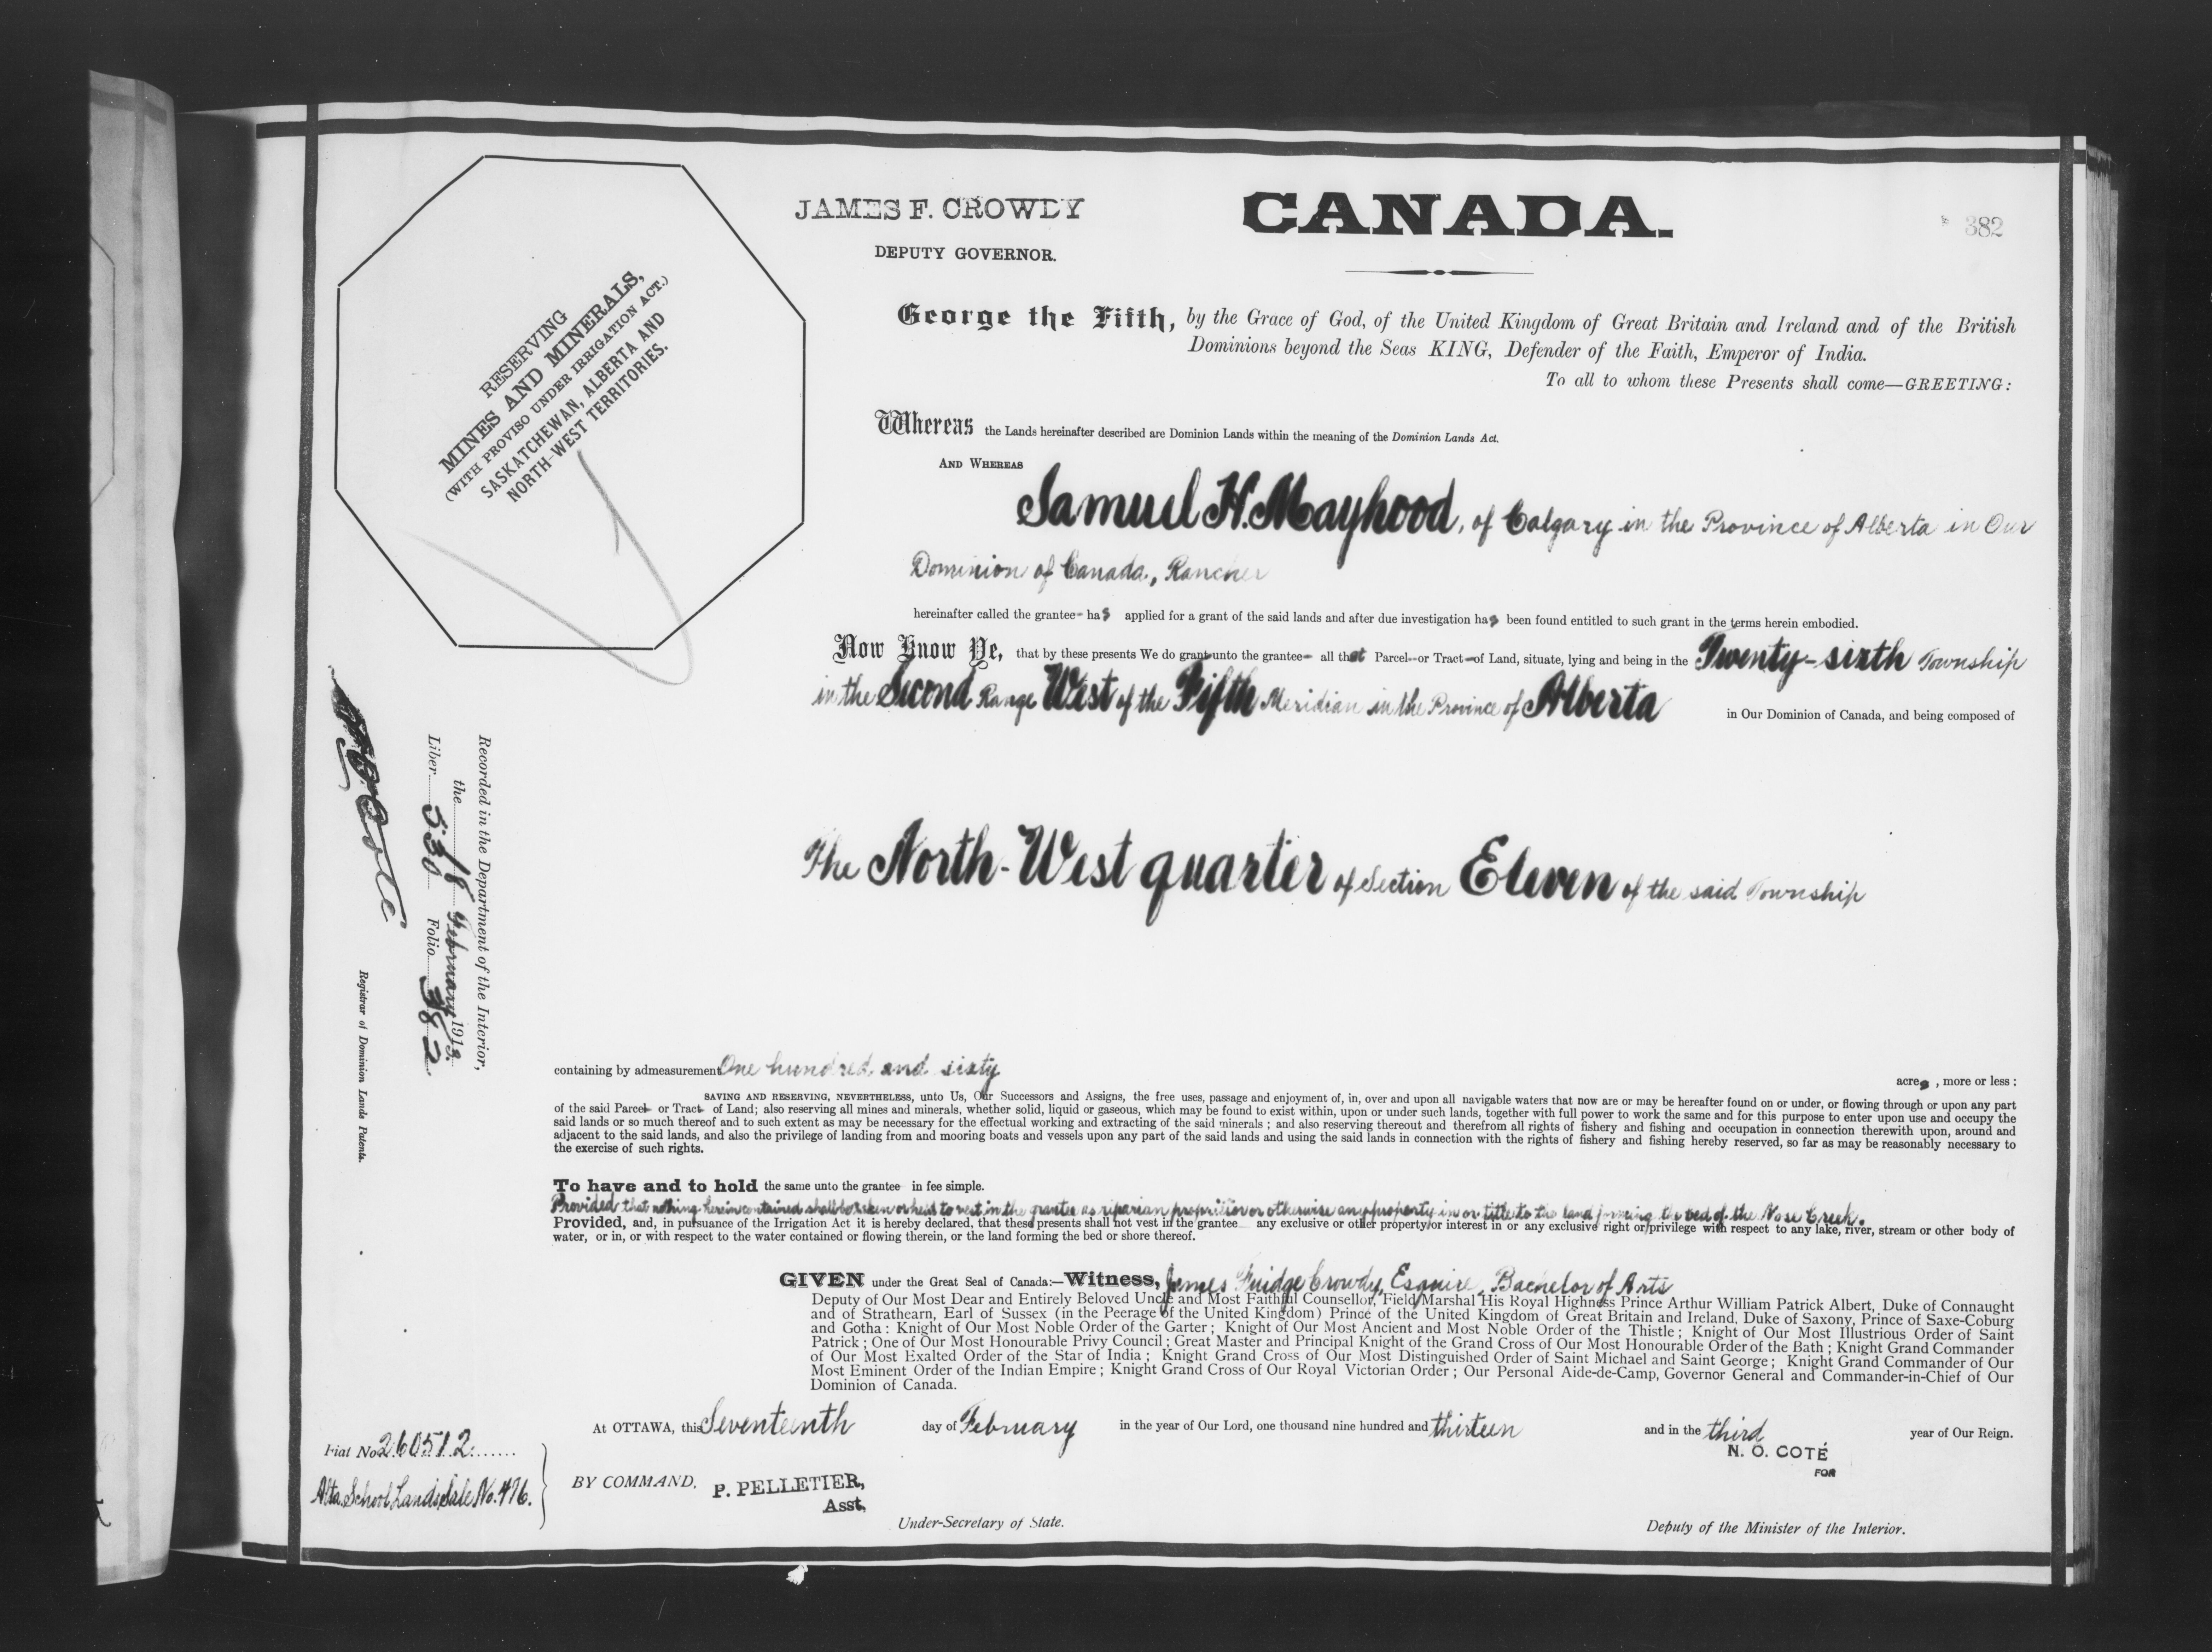 JAMES F. CROWDY
DEPUTY GOVERNOR.
CANADA.
382
RESERVING
MINES AND MINERALS,
(WITH PROVISO UNDER IRRIGATION ACT.)
SASKATCHEWAN, ALBERTA AND
NORTH-WEST TERRITORIES.
George the Fifth, by the Grace of God, of the United Kingdom of Great Britain and Ireland and of the British
Dominions beyond the Seas KING, Defender of the Faith, Emperor of India.
To all to whom these Presents shall come—GREETING:
Whereas the Lands hereinafter described are Dominion Lands within the meaning of the Dominion Lands Act.
AND WHEREAS
Samuel H. Mayhood, of Calgary in the Province of Alberta in Our
Dominion of Canada, Rancher
hereinafter called the grantee has applied for a grant of the said lands and after due investigation has been found entitled to such grant in the terms herein embodied.
Now Know Ye, that by these presents We do grant unto the grantee all that Parcel or Tract of Land, situate, lying and being in the Twenty-sixth Township
in the Second Range West of the Fifth Meridian in the Province of Alberta in Our Dominion of Canada, and being composed of
The North-West quarter of Section Eleven of the said Township
Recorded in the Department of the Interior,
the 18 February 1913.
Liber 530 Folio 382
N. O. Coté
Registrar of Dominion Lands Patents.
containing by admeasurement One hundred and sixty acres, more or less :
SAVING AND RESERVING, NEVERTHELESS, unto Us, Our Successors and Assigns, the free uses, passage and enjoyment of, in, over and upon all navigable waters that now are or may be hereafter found on or under, or flowing through or upon any part
of the said Parcel or Tract of Land; also reserving all mines and minerals, whether solid, liquid or gaseous, which may be found to exist within, upon or under such lands, together with full power to work the same and for this purpose to enter upon use and occupy the
said lands or so much thereof and to such extent as may be necessary for the effectual working and extracting of the said minerals ; and also reserving thereout and therefrom all rights of fishery and fishing and occupation in connection therewith upon, around and
adjacent to the said lands, and also the privilege of landing from and mooring boats and vessels upon any part of the said lands and using the said lands in connection with the rights of fishery and fishing hereby reserved, so far as may be reasonably necessary to
the exercise of such rights.
To have and to hold the same unto the grantee in fee simple.
Provided that nothing herein contained shall be taken or held to vest in the grantee as riparian proprietor or otherwise any property in or title to the land forming the bed of the Nose Creek.
Provided, and, in pursuance of the Irrigation Act it is hereby declared, that these presents shall not vest in the grantee any exclusive or other property or interest in or any exclusive right or privilege with respect to any lake, river, stream or other body of
water, or in, or with respect to the water contained or flowing therein, or the land forming the bed or shore thereof.
GIVEN under the Great Seal of Canada:—Witness, James Fuidge Crowdy, Esquire, Bachelor of Arts
Deputy of Our Most Dear and Entirely Beloved Uncle and Most Faithful Counsellor, Field Marshal His Royal Highness Prince Arthur William Patrick Albert, Duke of Connaught
and of Strathearn, Earl of Sussex (in the Peerage of the United Kingdom) Prince of the United Kingdom of Great Britain and Ireland, Duke of Saxony, Prince of Saxe-Coburg
and Gotha : Knight of Our Most Noble Order of the Garter ; Knight of Our Most Ancient and Most Noble Order of the Thistle ; Knight of Our Most Illustrious Order of Saint
Patrick ; One of Our Most Honourable Privy Council ; Great Master and Principal Knight of the Grand Cross of Our Most Honourable Order of the Bath ; Knight Grand Commander
of Our Most Exalted Order of the Star of India ; Knight Grand Cross of Our Most Distinguished Order of Saint Michael and Saint George ; Knight Grand Commander of Our
Most Eminent Order of the Indian Empire ; Knight Grand Cross of Our Royal Victorian Order ; Our Personal Aide-de-Camp, Governor General and Commander-in-Chief of Our
Dominion of Canada.
At OTTAWA, this Seventeenth day of February in the year of Our Lord, one thousand nine hundred and thirteen and in the third year of Our Reign.
Fiat No 260512
Alta. School Lands Sale No. 476.
BY COMMAND, P. PELLETIER,
Asst,
Under-Secretary of State.
N. O. COTÉ
FOR
Deputy of the Minister of the Interior.